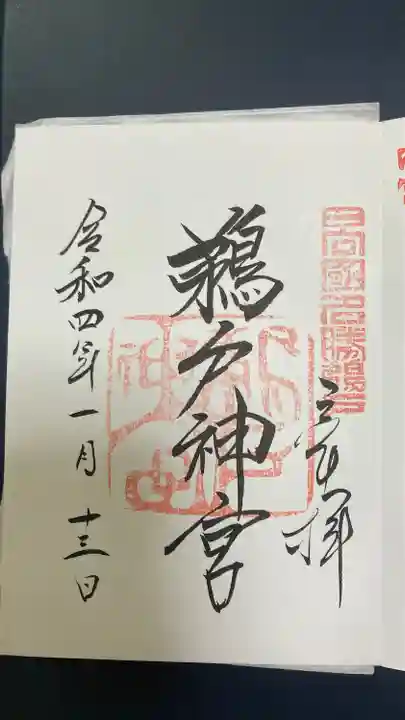 日向國名勝鵜戸
奉拝
鵜戸神宮
鵜戸神宮
令和四年一月十三日